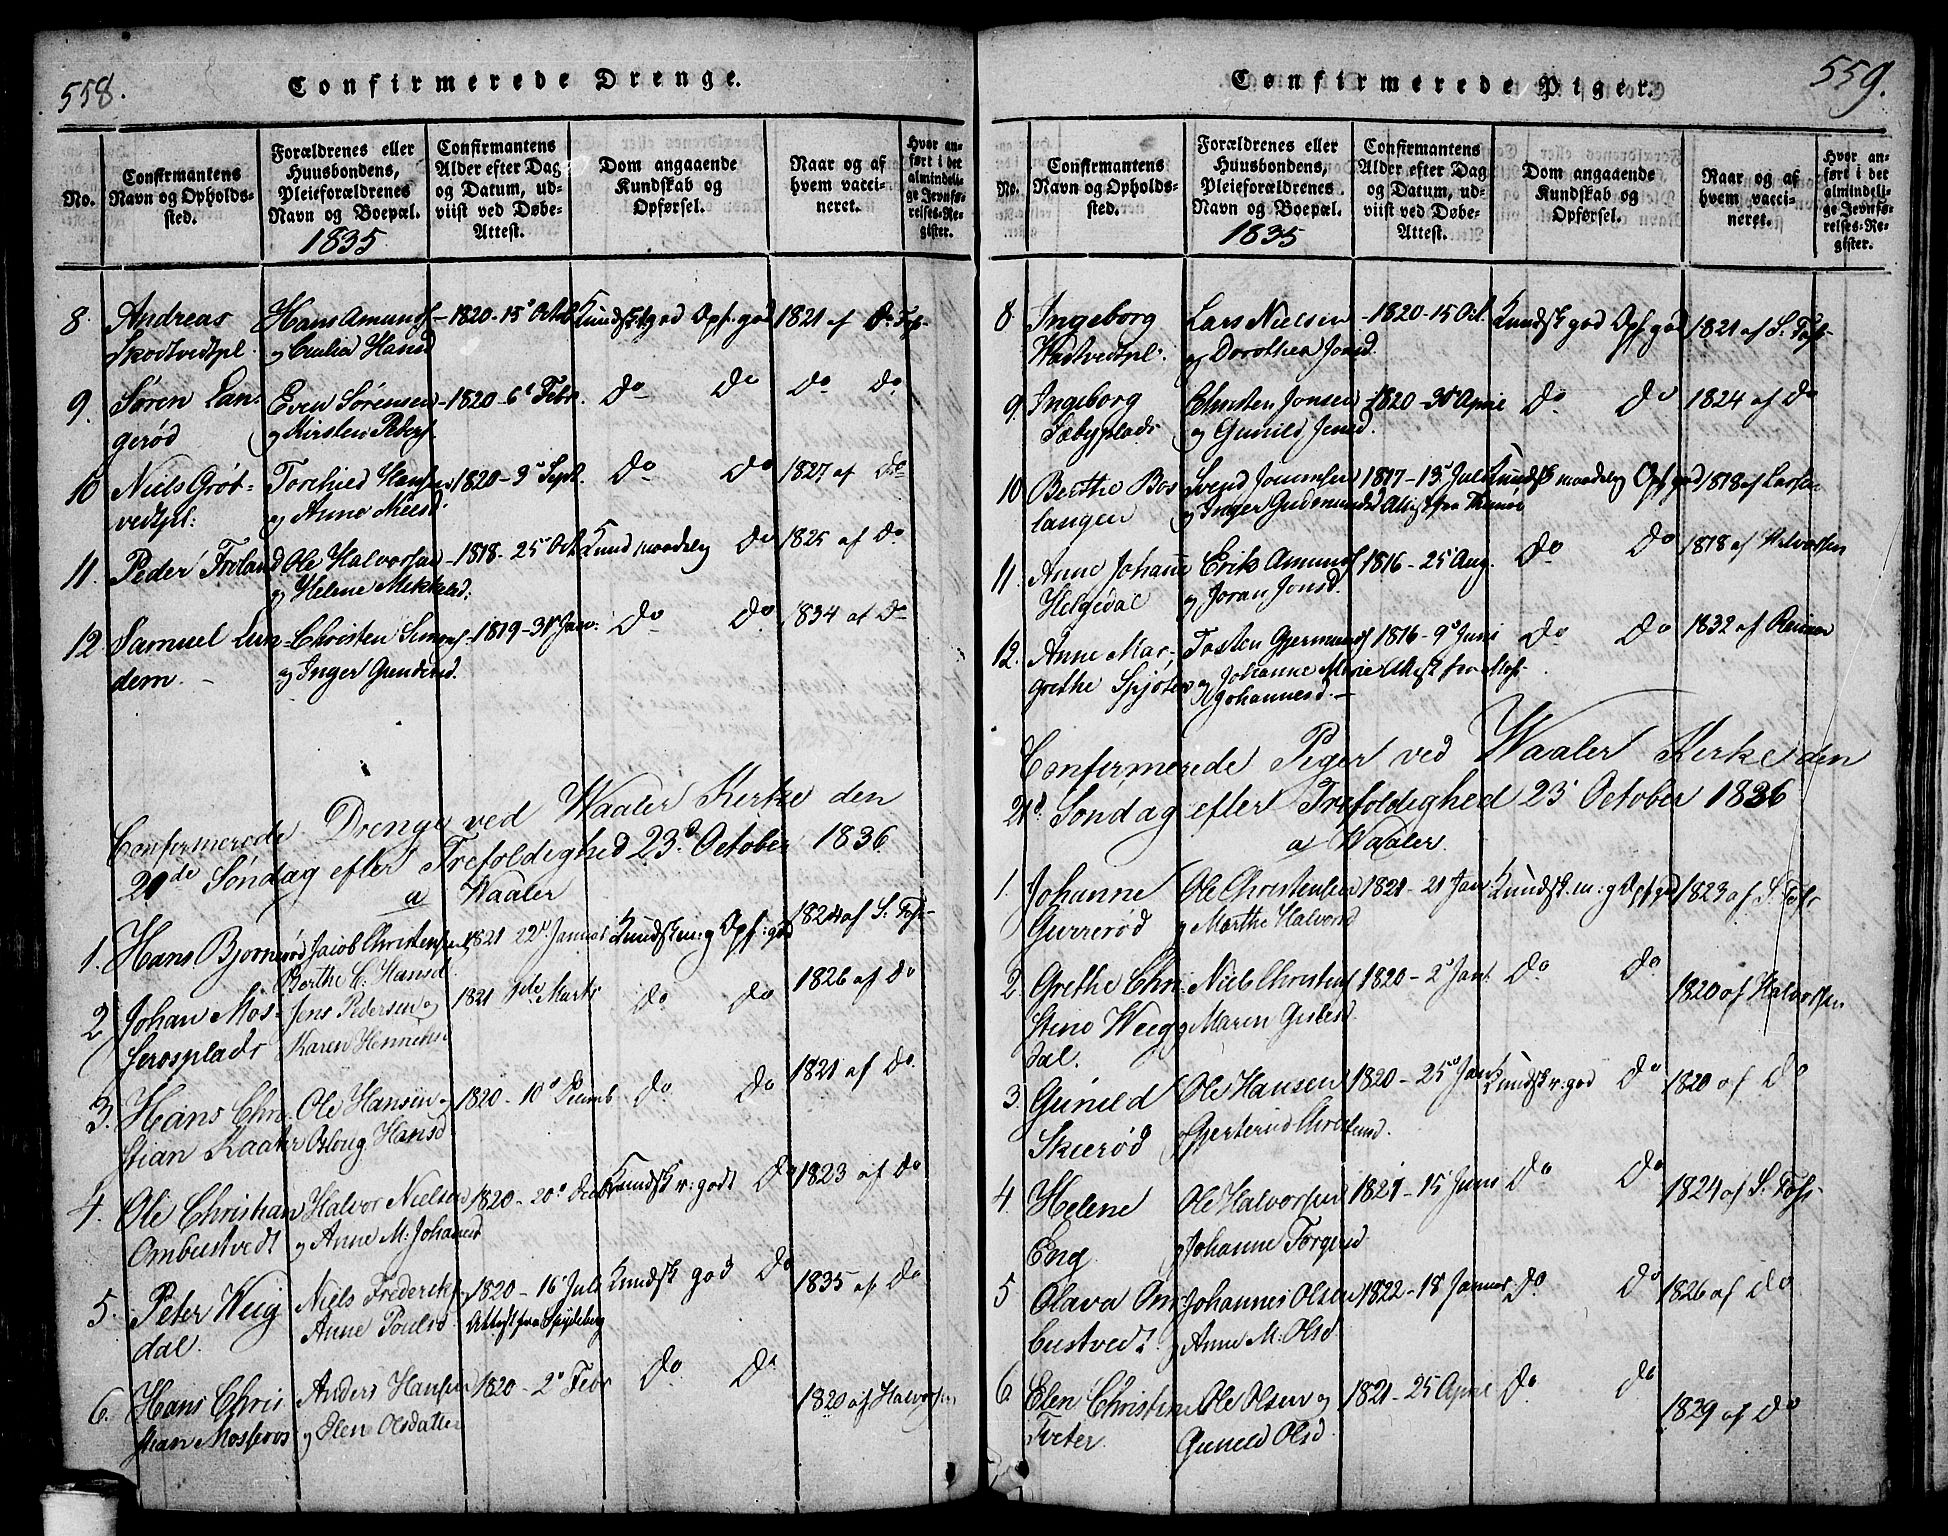 558.
Confirmerede Drenge.
No.
Confirmantens
Navn og Opholds-
sted.
Forældrenes eller
Huusbondens,
Pleieforældrenes
Navn og Boepæl.
1835
Confirmantens
Alder efter Dag
og Datum, ud-
viist ved Døbe-
Attest.
Dom angaaende
Kundskab og
Opførsel.
Naar og af
hvem vacci-
neret.
Hvor an-
ført i det
almindeli-
ge Jevnfø-
relses-Re-
gister.
8. Andreas Hans Amunds 1820 - 15 Octob Kundsk god Opf: god 1821 af
Skodtvedtpl. og Hansd
9. Søren Lan- Even Sørensen 1820 - 6 Febr. Do Do Do Do
gerød og Kirsten Peders
10 Niels Grøt- Hansen 1820 - 3 Sept. Do Do 1827 af Do
vedtpl: og Anne Nielsd.
11. Peder Froland Ole Halvorsen 1818 - 25 Oct. Kund maadelig Do 1825 af Do
og Helene Mikkelsd:
12. Samuel Lun- Christen Simons 1819 - 31 Janv. Do Do 1834 af Do
dem. og Inger Gundersd.
Confirmerede Drenge ved Waaler Kirke den
21de Søndag efter Trefoldighed 23d October 1836
a Waaler
1. Hans Bjørnerød Jacob Christensen 1821 22 Januar Kundsk m: g Opf: god af S. Tofs
Berthe C. Hansd.
2 Johan Mos- Jens Pedersen og 1821 Marts Do Do 1826 af Do
serosplads Karen
3. Hans Chri- Ole Hansen og 1820 - 10 Decemb Do Do 1821 af Do
stian Raaker Hansd
4. Ole Christian Halvor Nielsen 1820 - 20 Kundsk v: godt Do 1823 af Do
Ombustvedt og Anne M: Johannesd
5. Peter Weig Niels Frederiks 1820 - 16 Juli Kundsk god Do 1835 af Do
dal. Anne Poulsd Attest fra Spydeberg
6. Hans Chris Anders Hansen 1820 - 2 Febr Do Do 1820 af Halvorsen
tian Mosseros og Elen Olsdatter
559.
Confirmerede Piger.
No.
Confirmantens
Navn og Opholds-
sted.
Forældrenes eller
Huusbondens,
Pleieforældrenes
Navn og Boepæl.
1835
Confirmantens
Alder efter Dag
og Datum, ud-
viist ved Døbe-
Attest.
Dom angaaende
Kundskab og
Opførsel.
Naar og af
hvem vacci-
neret.
Hvor an-
ført i det
almindeli-
ge Jevnfø-
relses-Re-
gister.
8 Ingeborg Lars Nielsen 1820 - 15 Oct. Kundsk god Opf: god 1821 af S. Tofs
og Dorothea Jonsd.
9. Ingeborg Christen Jonsen 1820 - April Do Do 1824 af Do
Sæbyplads og Gunild Jensd.
10 Berthe Bos Svend 1817 - 13 Juli Kundsk maadelig Opf god 1818 af
langen og Inger Gudmundsd Attest fra
11. Anne Johanne Erik Amunds 1816 - 25 Aug. Do Do 1818 af Halvorsen
Helgedal og Joran Jonsd.
12. Anne Mar- Tosten Gjermunds 1816 - 9 Juni Do Do 1832 af
grethe Spjøten og Johanne Marie Attest fra Moss
Johannesd.
Confirmerede Piger ved Waaler Kirke den
21d Søndag efter Trefoldighed 23 October 1836
a Waaler.
1. Johanne Ole Christensen 1821 - 21 Jan Kundsk m: g Opf god 1823 af S. Tofs
Gurrerød og Marthe Halvorsd
2. Grethe Chri- Niels Christens 1820 - 2 Jan. Do Do 1820 af Halvorsen
stine Weig og Maren
dal.
3. Gunild Ole Hansen 1820 - 25 Jan Kundsk v: god Do 1820 af Do
Skierød
4. Helene Ole Halvorsen 1821 - 15 Juni Do Do 1824 af S. Tofs
Eng og Johanne Torgersd
5 Olava Om- Johannes Olsen 1822 - 18 Januar Do. Do 1826 af Do
bustvedt og Anne M. Olsd
6. Elen Christine Ole Olsen og 1821 - 25 April Do Do 1829 af Do
Tveter. Gunild Olsd